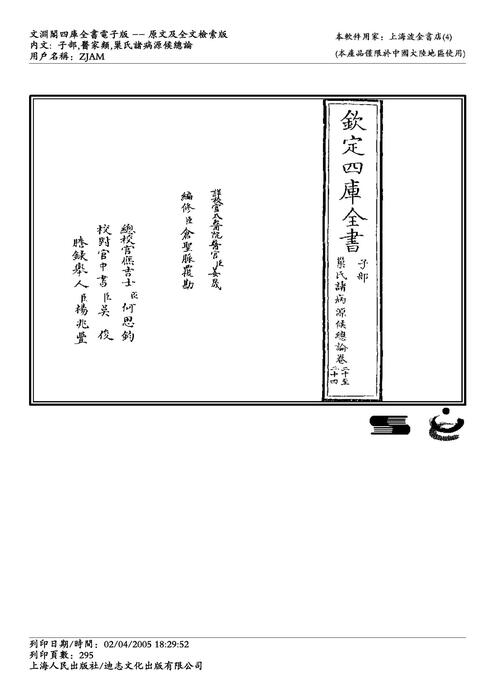 文淵閣四庫全書電子版 —— 原文及全文檢索版
内文: 子部,醫家類,巢氏諸病源候總論
用戶名稱: ZJAM
本軟件用家: 上海波金書店(4)
(本產品僅限於中國大陸地區使用)
欽定四庫全書
子部
巢氏諸病源候總論卷二十至二十四
詳校官太醫院醫官臣姜晟
編修臣倉聖脈覆勘
總校官庶吉士臣何思鈞
校對官中書臣吳俊
謄錄舉人臣楊兆豐
列印日期/時間: 02/04/2005 18:29:52
列印頁數: 295
上海人民出版社/迪志文化出版有限公司